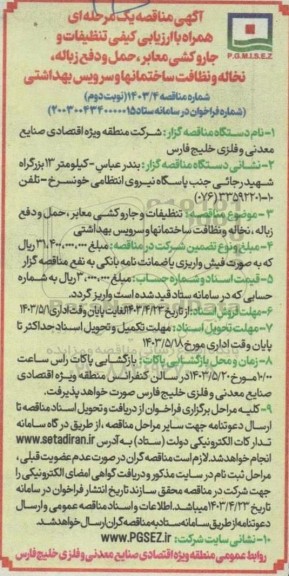 آگهی مناقصه یک مرحله ای
همراه با ارزیابی کیفی تنظیفات و
جاروکشی معابر، حمل و دفع زباله،
نخاله و نظافت ساختمانها و سرویس بهداشتی
P.G.M.I.S.E.Z
شماره مناقصه ۱۴۰۳/۴ (نوبت دوم)
(شماره فراخوان در سامانه ستاد ۲۰۰۳۰۰۴۳۴۰۰۰۰۰۱۵)
۱- نام دستگاه مناقصه گزار: شرکت منطقه ویژه اقتصادی صنایع
معدنی و فلزی خلیج فارس
۲- نشانی دستگاه مناقصه گزار: بندرعباس-کیلومتر ۱۳ بزرگراه
شهید رجائی جنب پاسگاه نیروی انتظامی خونسرخ - تلفن
۱۰-۳۳۵۹۲۲۰۱ (۰۷۶)
۳- موضوع مناقصه: تنظیفات و جاروکشی معابر، حمل و دفع
زباله، نخاله و نظافت ساختمانها و سرویس بهداشتی
۴- مبلغ و نوع تضمین شرکت در مناقصه: مبلغ ۳۱,۴۰۰,۰۰۰,۰۰۰ ریال
که به صورت فیش واریزی یا ضمانت نامه بانکی به نفع مناقصه گزار
۵- قیمت اسناد و شماره حساب: مبلغ ۳,۰۰۰,۰۰۰ ریال به شماره
حسابی که در سامانه ستاد قید شده است واریز گردد.
۶- مهلت فروش اسناد: از تاریخ ۱۴۰۳/۴/۲۳ لغایت پایان وقت اداری ۱۴۰۳/۵/۱
۷- مهلت تحویل اسناد: مهلت تکمیل و تحویل اسناد حداکثر تا
پایان وقت اداری مورخ ۱۴۰۳/۵/۱۸
۸- زمان و محل بازگشایی پاکات: بازگشایی پاکات راس ساعت
۱۰/۰۰ مورخ ۱۴۰۳/۵/۲۰ در سالن کنفرانس منطقه ویژه اقتصادی
صنایع معدنی و فلزی خلیج فارس صورت خواهد پذیرفت.
۹- کلیه مراحل برگزاری فراخوان از دریافت و تحویل اسناد مناقصه تا
ارسال دعوتنامه جهت سایر مراحل مناقصه، از طریق درگاه سامانه
تدارکات الکترونیکی دولت (ستاد) به آدرس www.setadiran.ir
انجام خواهد شد. لازم است مناقصه گران در صورت عدم عضویت قبلی،
مراحل ثبت نام در سایت مذکور و دریافت گواهی امضای الکترونیکی را
جهت شرکت در مناقصه محقق سازند تاریخ انتشار فراخوان در سامانه
تاریخ ۱۴۰۳/۴/۲۳ میباشد. اطلاعات و اسناد مناقصه عمومی و ارسال
دعوتنامه از طریق سامانه ستاد به مناقصه گران ارسال خواهد شد.
۱۰- نشانی سایت شرکت: www.PGSEZ.ir
روابط عمومی منطقه ویژه اقتصادی صنایع معدنی و فلزی خلیج فارس